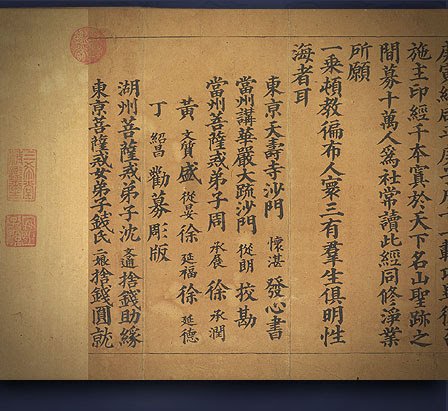 施主印經千本寘於天下名山聖跡之
間募十萬人爲社常讀此經同修淨業
所願
一乘頓教徧布人寰三有羣生俱明性
海者耳
東亰天壽寺沙門 懷湛 發心書
當州講華嚴大疏沙門 從朗 挍勘
當州菩薩戒弟子周 承展 徐 承潤
黃 文質 盛 從晏 徐 延福 徐 延德
丁 紹昌 勸募彫版
湖州菩薩戒弟子沈 捨錢助緣
東亰菩薩戒女弟子錢氏 二娘 捨錢圓就